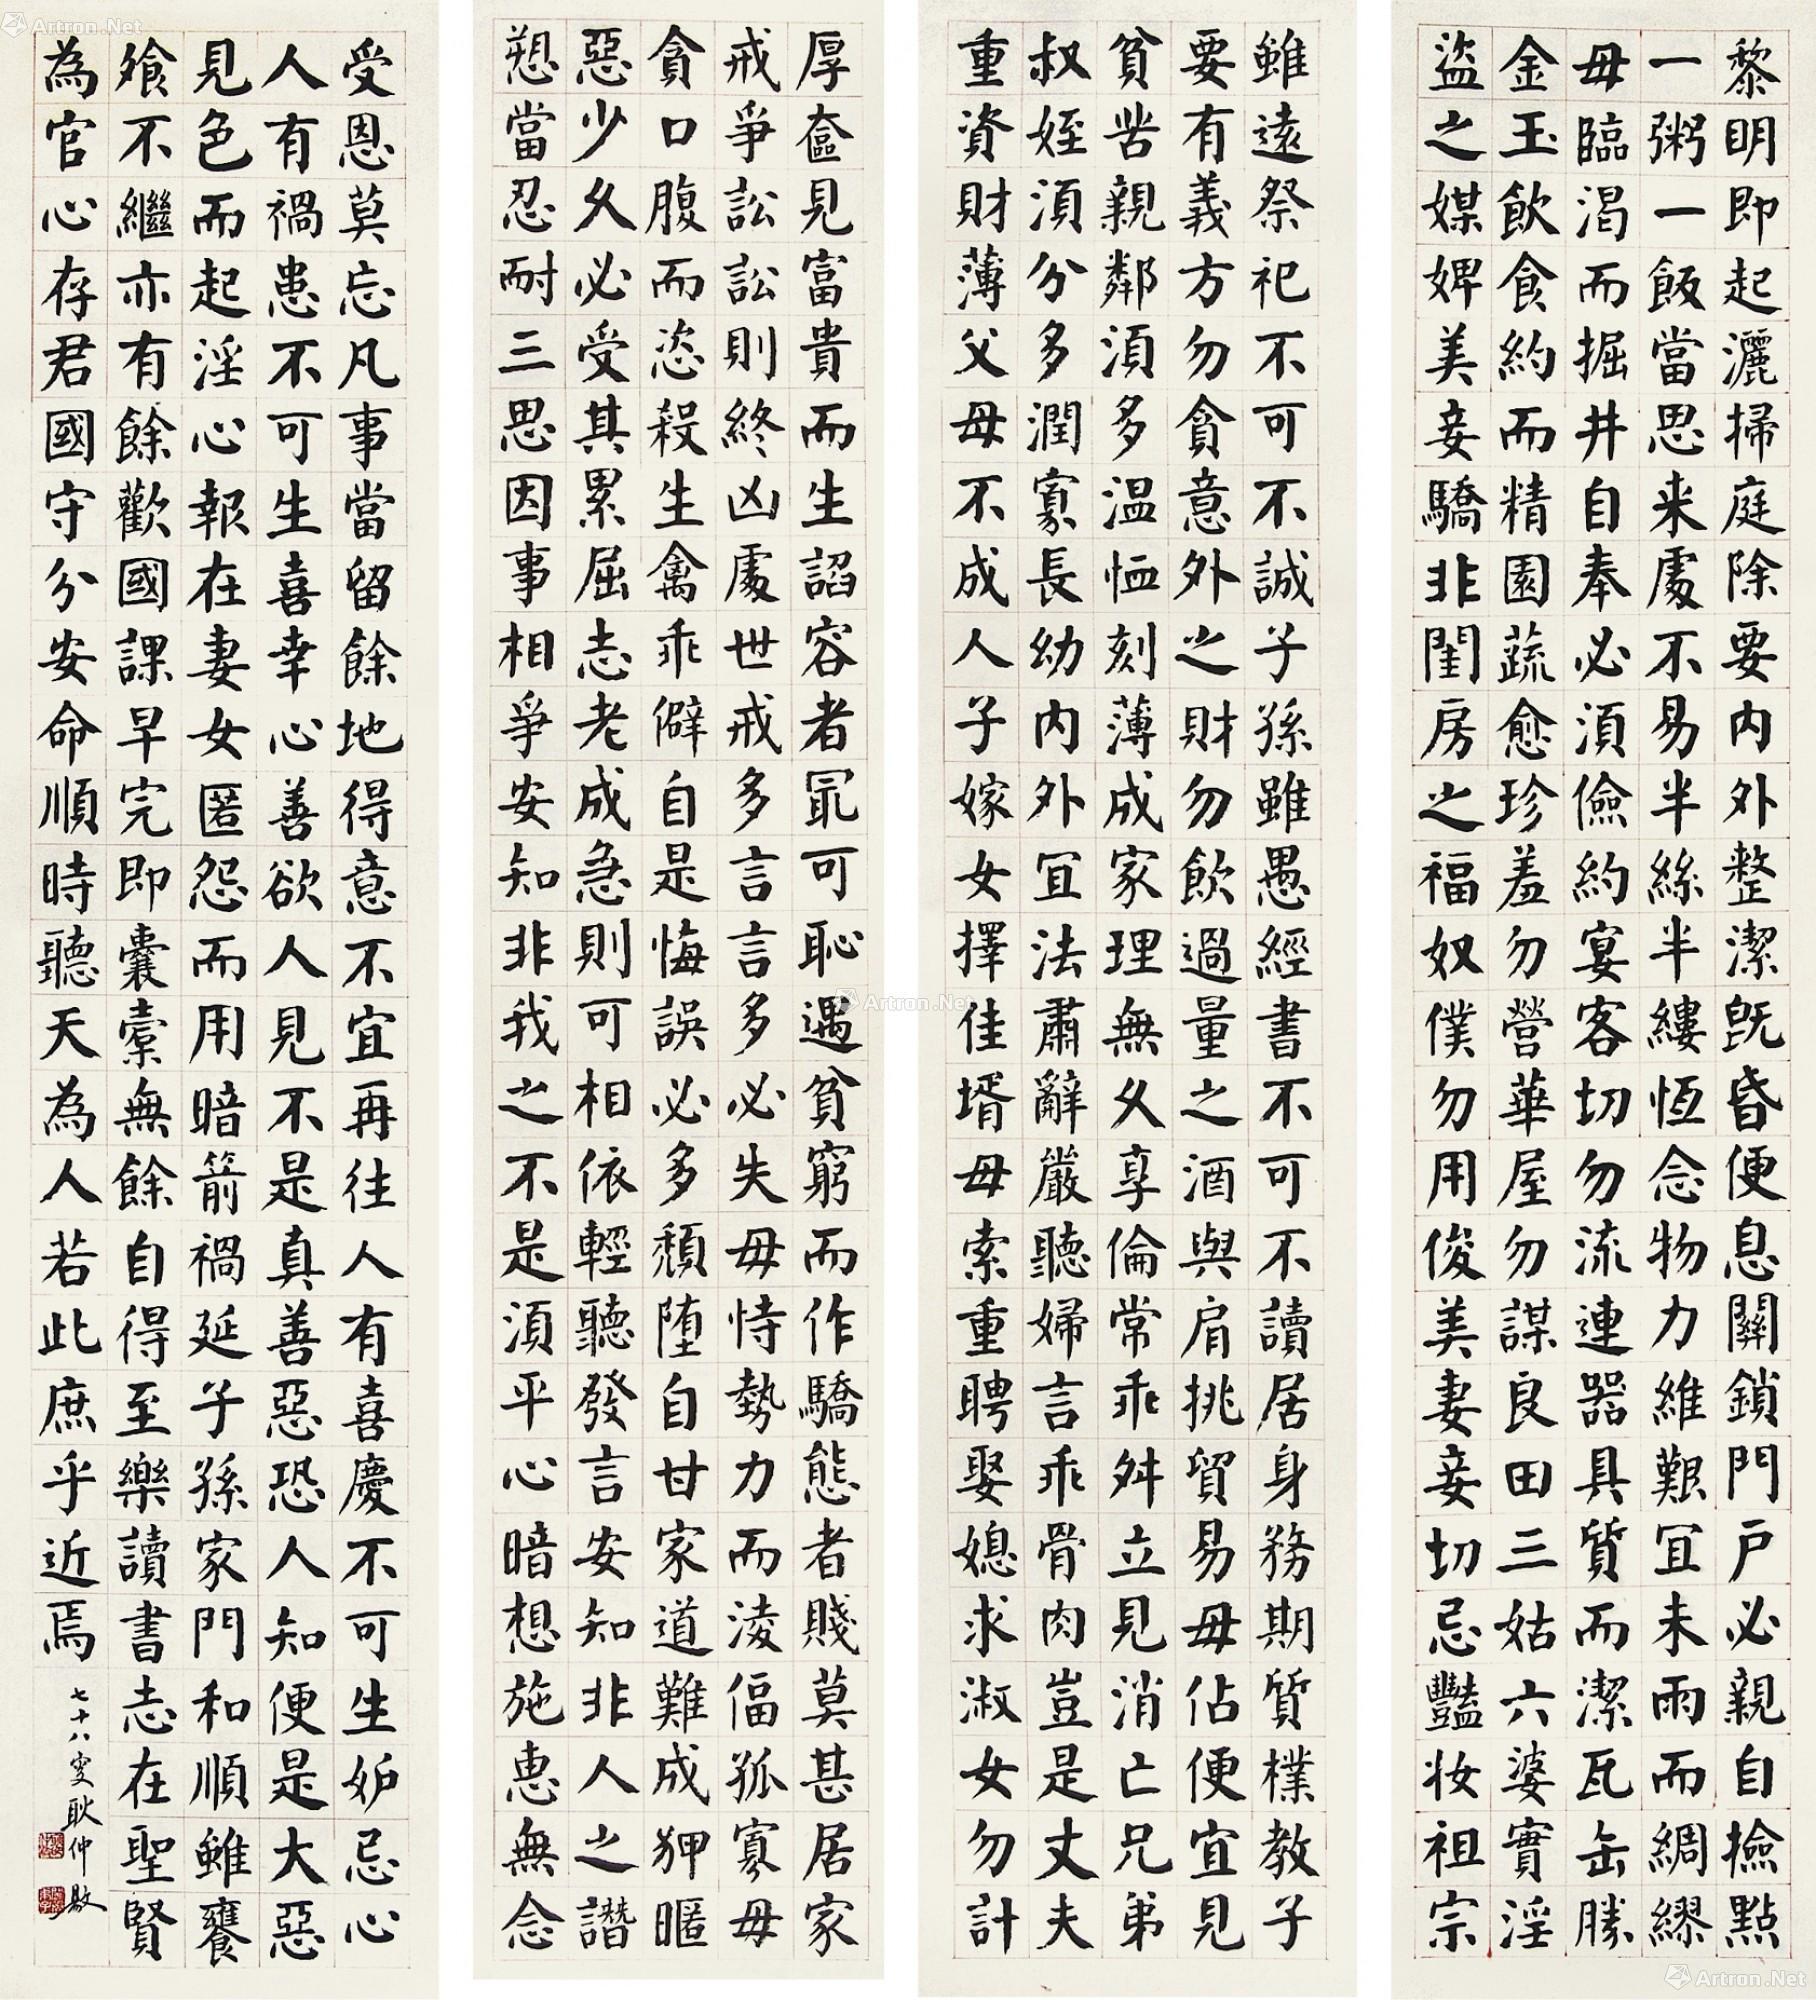 黎明即起灑掃庭除要内外整潔旣昏便息關鎖門戶必親自撿點
一粥一飯當思来處不易半絲半縷恆念物力維艱宜未雨而綢繆
毋臨渴而掘井自奉必須儉約宴客切勿流連器具質而潔瓦缶勝
金玉飲食約而精園蔬愈珍羞勿營華屋勿謀良田三姑六婆實淫
盜之媒婢美妾驕非閨房之福奴僕勿用俊美妻妾切忌豔妝祖宗
雖遠祭祀不可不誠子孫雖愚經書不可不讀居身務期質樸教子
要有義方勿貪意外之財勿飲過量之酒與肩挑貿易毋佔便宜見
貧苦親鄰須多温恤刻薄成家理無久享倫常乖舛立見消亡兄弟
叔姪須分多潤寡長幼内外宜法肅辭嚴聽婦言乖骨肉豈是丈夫
重資財薄父母不成人子嫁女擇佳壻毋索重聘娶媳求淑女勿計
厚奩見富貴而生諂容者冣可恥遇貧窮而作驕態者賤莫甚居家
戒爭訟訟則終凶處世戒多言言多必失毋恃勢力而淩偪孤寡毋
貪口腹而恣殺生禽乖僻自是悔誤必多頹堕自甘家道難成狎暱
惡少久必受其累屈志老成急則可相依輕聽發言安知非人之譖
愬當忍耐三思因事相爭安知非我之不是須平心暗想施惠無念
受恩莫忘凡事當留餘地得意不宜再往人有喜慶不可生妒忌心
人有禍患不可生喜幸心善欲人見不是真善惡恐人知便是大惡
見色而起淫心報在妻女匿怨而用暗箭禍延子孫家門和順雖饔
飧不繼亦有餘歡國課早完即囊橐無餘自得至樂讀書志在聖賢
為官心存君國守分安命順時聽天為人若此庶乎近焉
七十八叟耿仲敭
Artron.Net
Artron.Net
Artron.Net